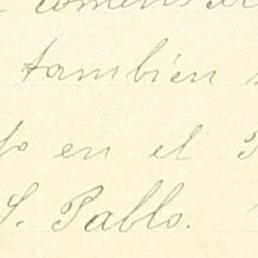 también
en el
S. Pablo.